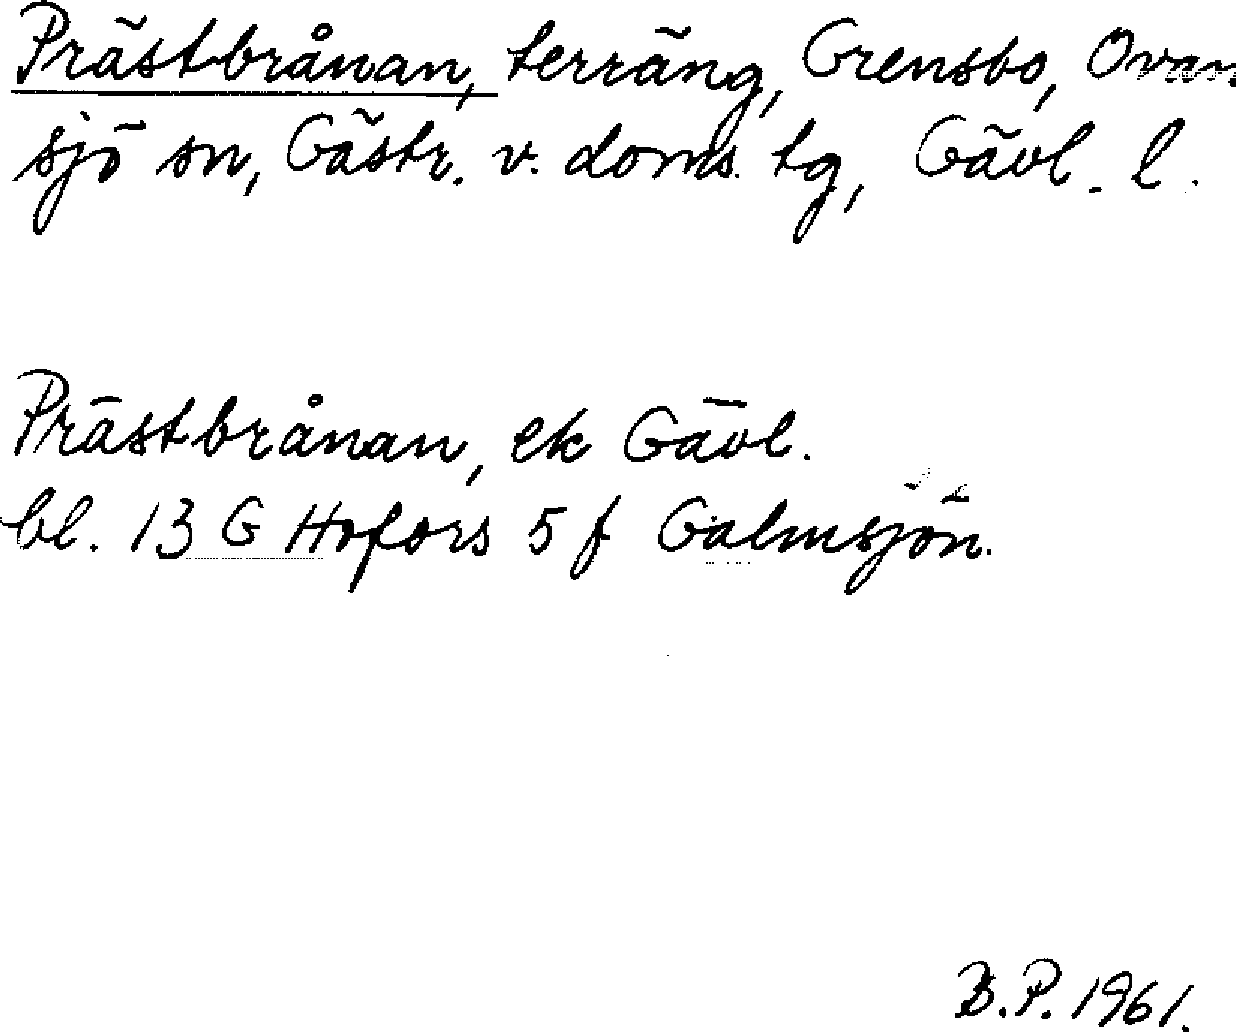 Prästbrånan, terräng, Grensbo, Ovan
sjö sn, Gästr. v. doms. tg, Gävl. l.
Prästbrånan, ek Gävl.
bl. 13 G Hofors 5 f Galmsjön.
B.P. 1961.